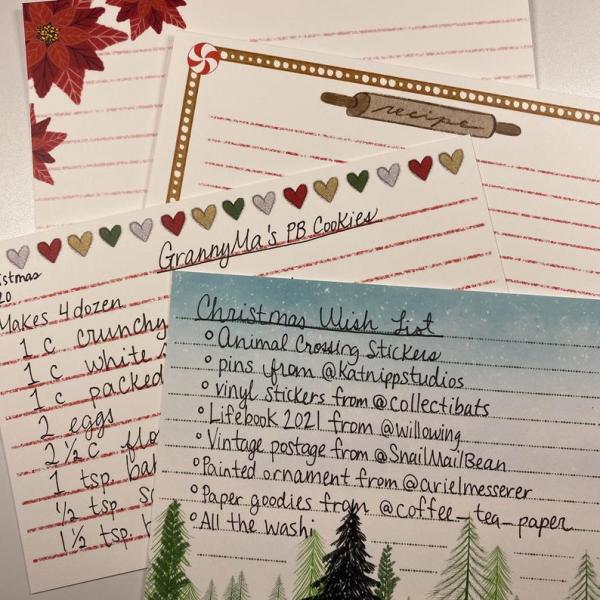 recipe
GrannyMa's PB Cookies
Makes 4 dozen
1 c crunchy
1 c white
1 c packed
2 eggs
2 ½ c flo
1 tsp ba
½ tsp s
1½ tsp
Christmas Wish List
° Animal Crossing Stickers
° pins from @katnippstudios
° vinyl stickers from @collectibats
° Lifebook 2021 from @willowing
° Vintage postage from @SnailMailBean
° Painted ornament from @arielmesserer
° Paper goodies from @coffee_tea_paper
° All the washi